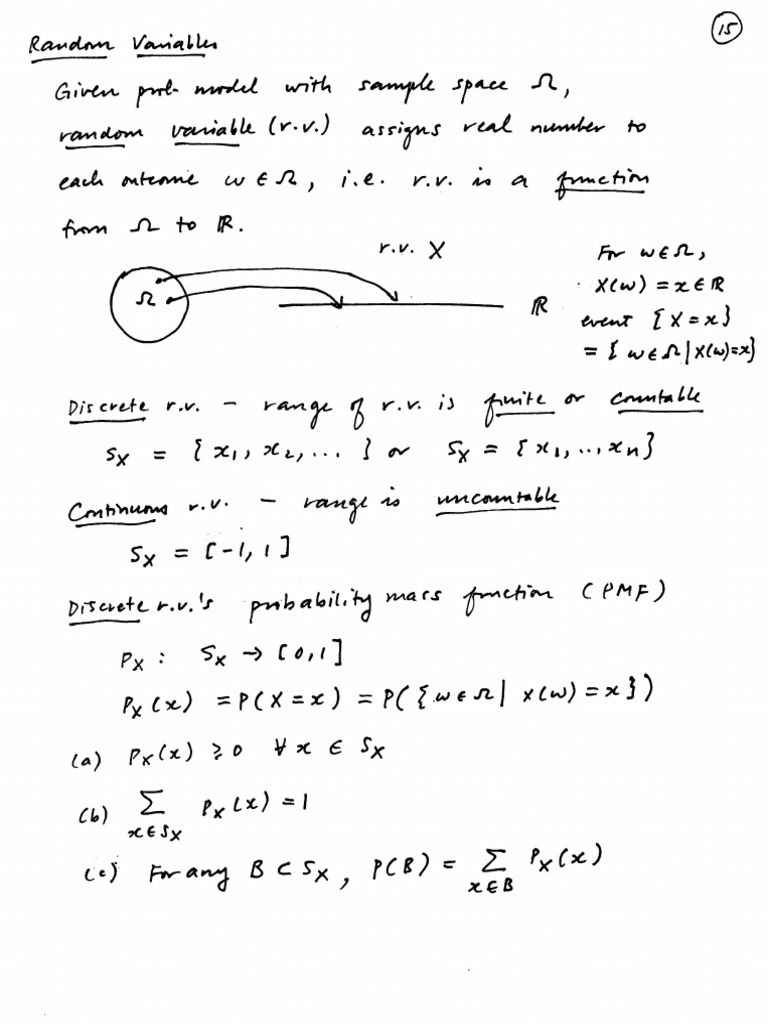 15
Random Variables
Given prob. model with sample space Ω,
random variable (r.v.) assigns real number to
each outcome ω ∈ Ω, i.e. r.v. is a function
from Ω to ℝ.
r.v. X
Ω
ℝ
For ω ∈ Ω,
X(ω) = x ∈ ℝ
event {X = x}
= {ω ∈ Ω | X(ω) = x}
Discrete r.v. – range of r.v. is finite or countable
S_X = {x₁, x₂, ... } or S_X = {x₁, ..., x_n}
Continuous r.v. – range is uncountable
S_X = [-1, 1]
Discrete r.v.'s probability mass function (PMF)
P_X : S_X → [0, 1]
P_X(x) = P(X = x) = P({ω ∈ Ω | X(ω) = x})
(a) P_X(x) ≥ 0 ∀ x ∈ S_X
(b) ∑_{x ∈ S_X} P_X(x) = 1
(c) For any B ⊂ S_X, P(B) = ∑_{x ∈ B} P_X(x)